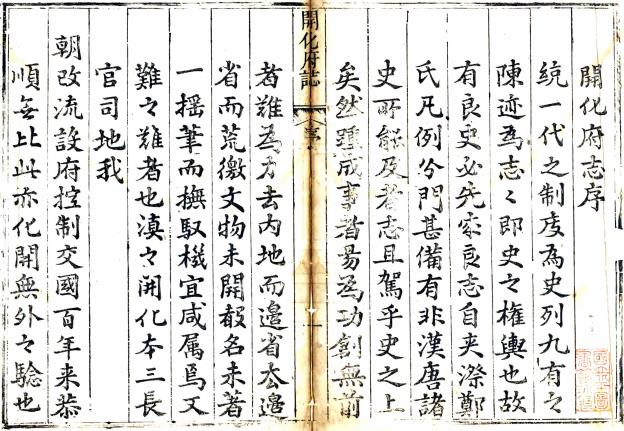 開化府志序
統一代之制度為史列九有之
陳迹為志〻即史之權輿也故
有良史必先索良志自夾漈鄭
氏凡例分門甚備有非漢唐諸
史所能及者志且駕乎史之上
矣然踵成事者易為功創無前
開化府誌
序
一
者難為力去內地而邊省去邊
省而荒徼文物未開聲名未著
一搖筆而撫馭機宜咸属焉又
難之難者也滇之開化本三長
官司地我
朝改流設府控制交國百年來恭
順無比此亦化開無外之驗也